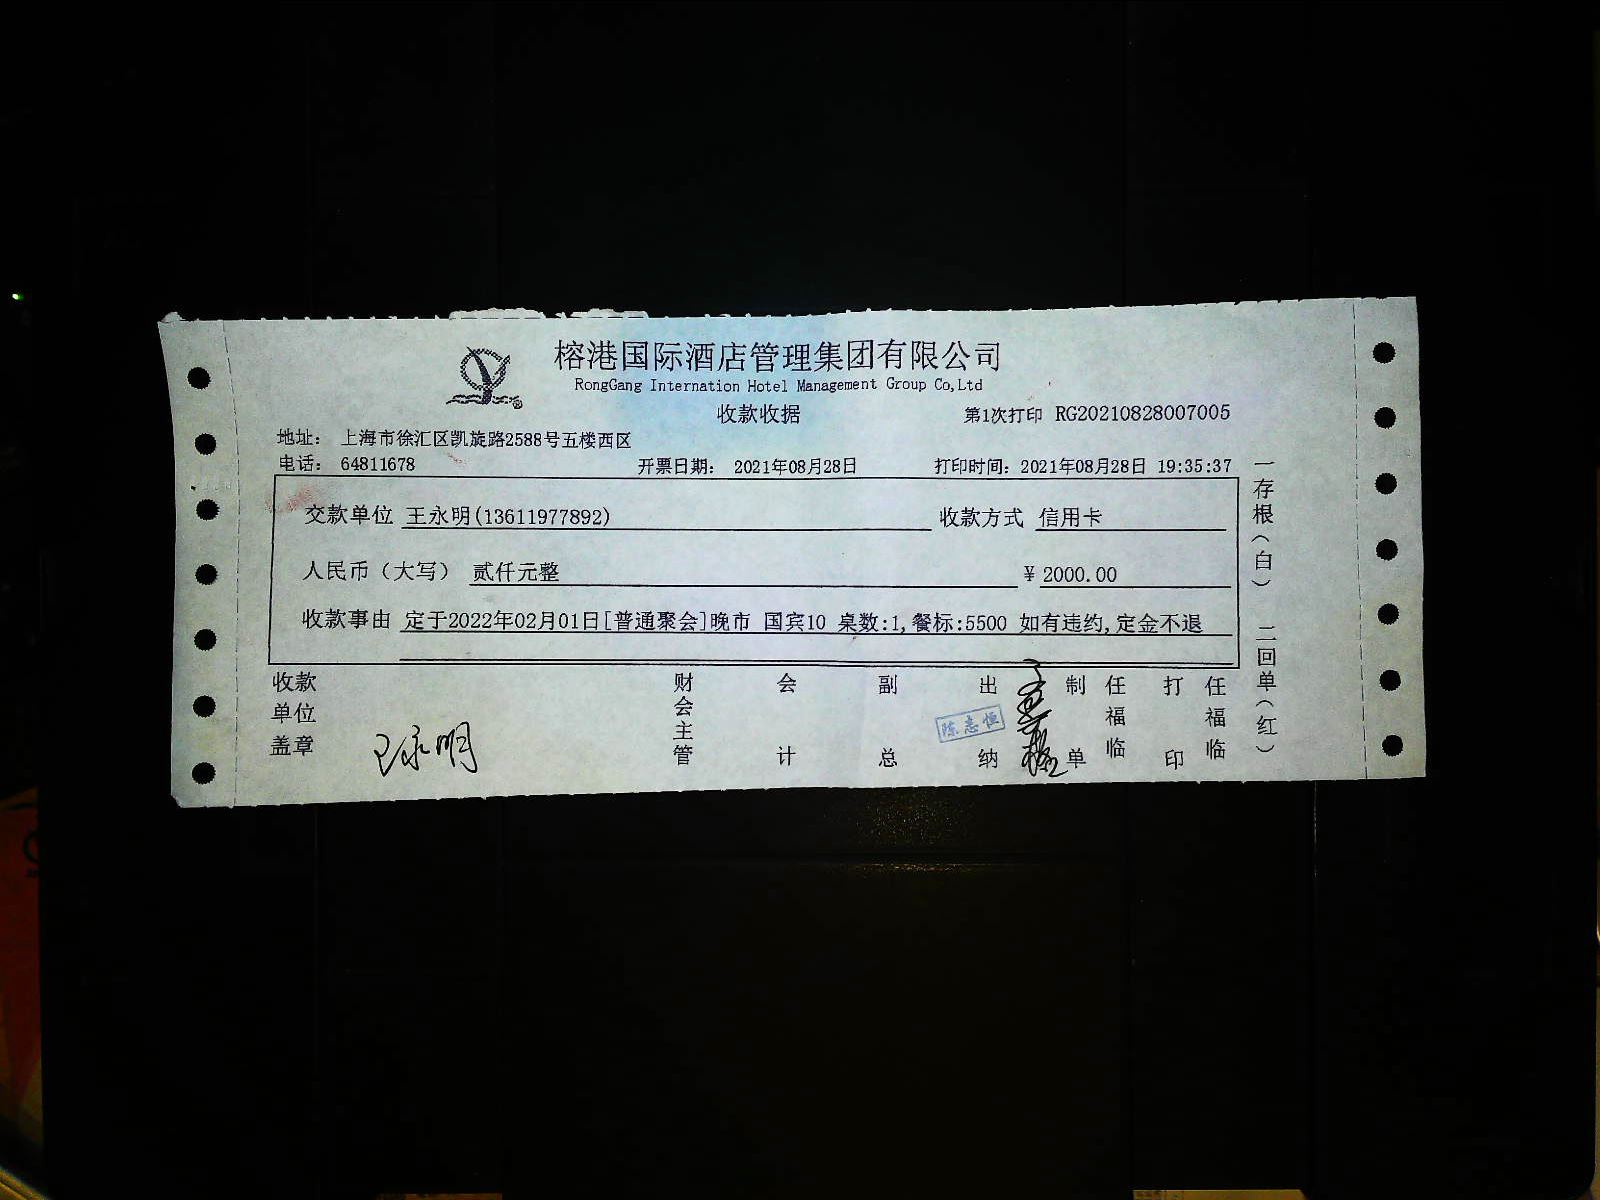 榕港国际酒店管理集团有限公司
RongGang Internation Hotel Management Group Co,Ltd
收款收据
第1次打印 RG20210828007005
地址： 上海市徐汇区凯旋路2588号五楼西区
电话： 64811678 开票日期： 2021年08月28日 打印时间：2021年08月28日 19:35:37
交款单位 王永明(13611977892) 收款方式 信用卡
人民币（大写） 贰仟元整 ￥2000.00
收款事由 定于2022年02月01日[普通聚会]晚市 国宾10 桌数:1,餐标:5500 如有违约,定金不退
收款单位盖章
王永明
财会主管
会计
副总
出纳
陈志恒
制单
任福临
打印
任福临
一存根（白） 二回单（红）